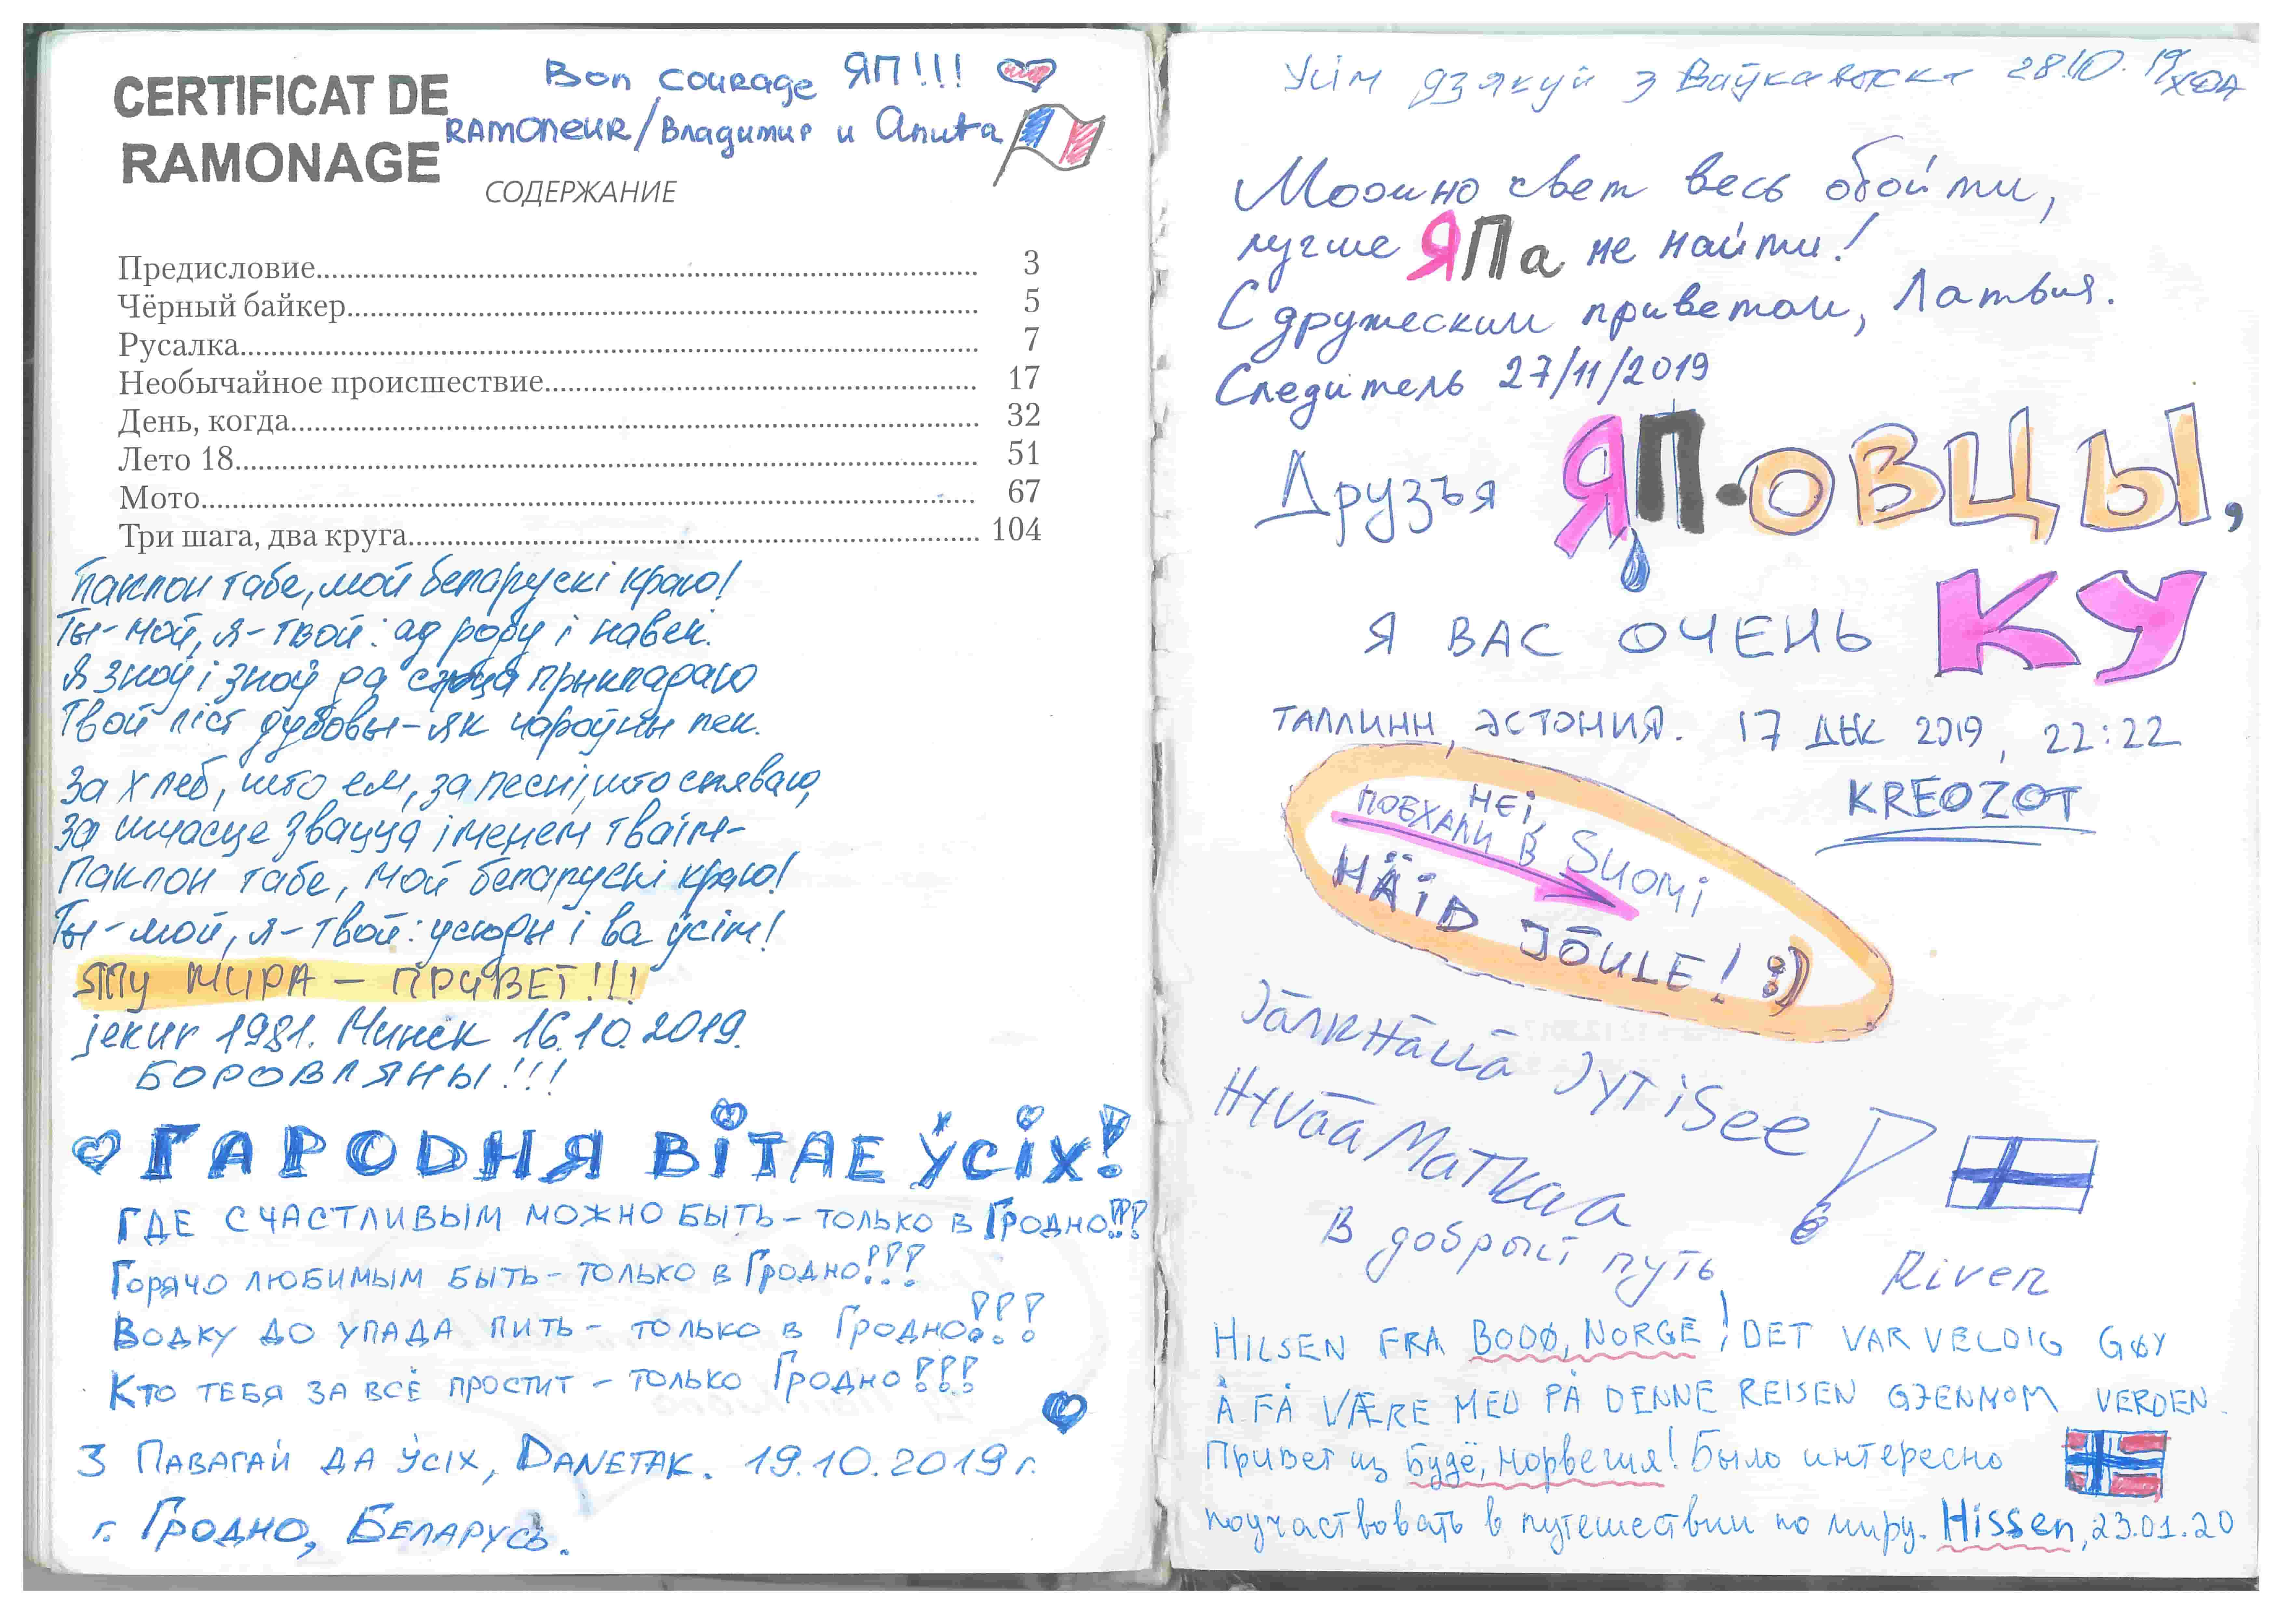 CERTIFICAT DE
RAMONAGE
Bon courage ЯП!!!
RAMONEUR/Владимир и Anuta
СОДЕРЖАНИЕ
Предисловие 3
Чёрный байкер 5
Русалка 7
Необычайное происшествие 17
День, когда 32
Лето 18 51
Мото 67
Три шага, два круга 104
Паклон табе, мой беларускі краю!
Ты-мой, я-твой: ад роду і навек.
Я зноў і зноў да сэрца прыкладаю
Твой ліст дубовы-як чароўны лек.
За хлеб, што ем, за песні, што спяваю,
За шчасце звацца іменем тваім-
Паклон табе, мой беларускі краю!
Ты-мой, я-твой: усюды і ва ўсім!
ЯПу МИРА - ПРИВЕТ!!!
jekur 1981. Минск 16.10.2019.
БОРОВЛЯНЫ!!!
ГАРОДНЯ ВІТАЕ ЎСІХ!
ГДЕ СЧАСТЛИВЫМ МОЖНО БЫТЬ - ТОЛЬКО В ГРОДНО!!!
ГОРЯЧО ЛЮБИМЫМ БЫТЬ - ТОЛЬКО В ГРОДНО!!!
ВОДКУ ДО УПАДА ПИТЬ - ТОЛЬКО В ГРОДНО!!!
КТО ТЕБЯ ЗА ВСЁ ПРОСТИТ - ТОЛЬКО ГРОДНО!!!
З ПАВАГАЙ ДА ЎСІХ, DANETAK. 19.10.2019 г.
г. ГРОДНО, БЕЛАРУСЬ.
Усім дзякуй з Ваўкавыска 28.10.19
Можно свет весь обойти,
лучше ЯПа не найти!
С дружеским приветом, Латвия.
Следитель 27/11/2019
Друзья ЯП-ОВЦЫ,
Я ВАС ОЧЕНЬ КУ
ТАЛЛИНН, ЭСТОНИЯ. 17 ДЕК 2019, 22:22
KREOZOT
HEI,
ПОЕХАЛИ В SUOMI
HÄID JÕULE! :)
JÄLKHÄLLÄ JYTISEE
HYVÄÄ MATKAA!
В добрый путь
River
HILSEN FRA BODØ, NORGE! DET VAR VELDIG GØY
Å FÅ VÆRE MED PÅ DENNE REISEN GJENNOM VERDEN.
Привет из Будё, Норвегия! Было интересно
поучаствовать в путешествии по миру. Hissen, 23.01.20